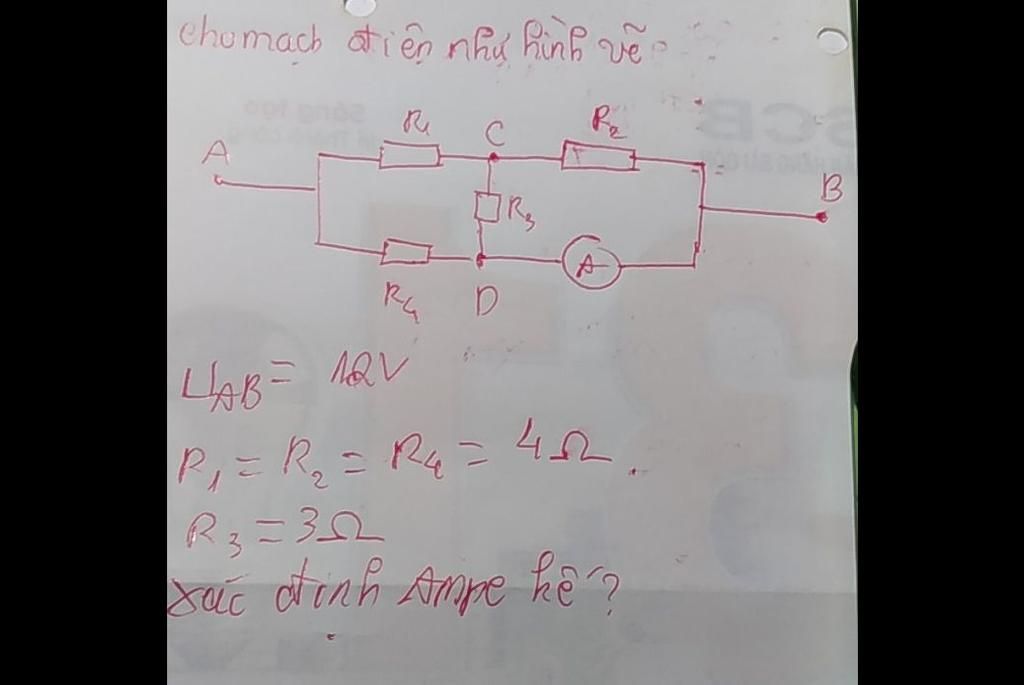 cho mạch điện như hình vẽ:
R1 C R2
A
B
R3
A
R4 D
UAB = 12V
R1 = R2 = R4 = 4Ω.
R3 = 3Ω
xác định Ampe kế?